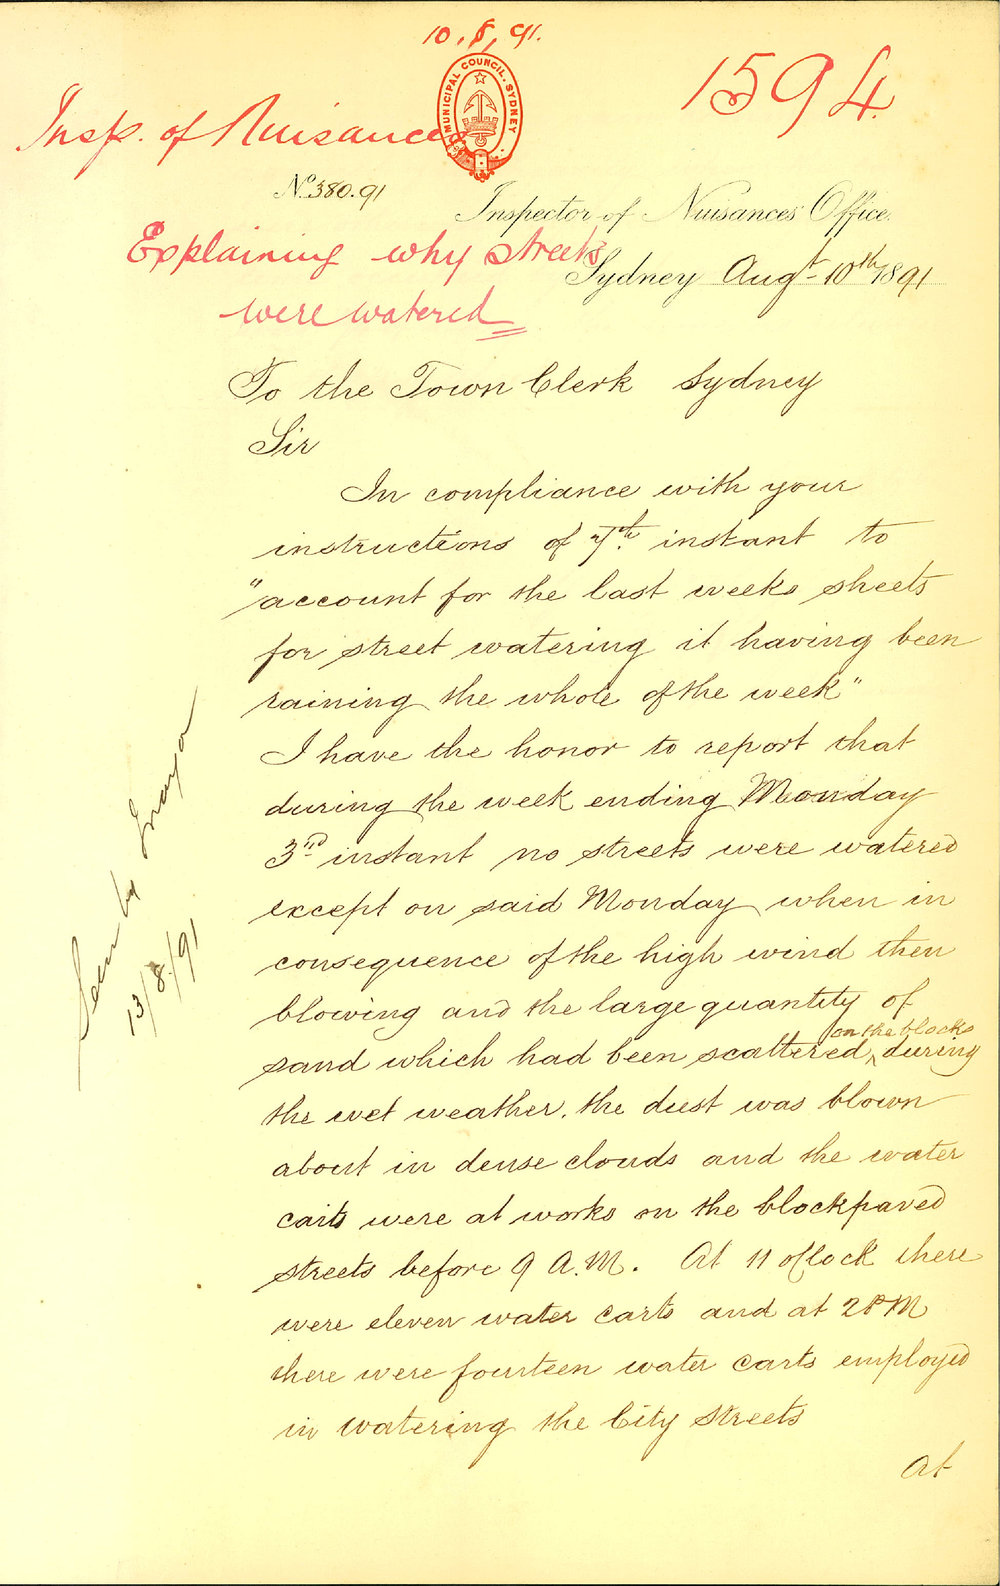 10.8.91.
1594
MUNICIPAL COUNCIL. SYDNEY
Insp. of Nuisances
No. 380.91
Inspector of Nuisances Office.
Explaining why streets
Sydney Augt 10th 1891
were watered
To the Town Clerk Sydney
Sir
In compliance with your
instructions of 7th. instant to
"account for the last weeks sheets
for street watering it having been
raining the whole of the week"
I have the honor to report that
during the week ending Monday
3rd instant no streets were watered
except on said Monday when in
consequence of the high wind then
blowing and the large quantity of
sand which had been scattered on the blocks during
the wet weather. the dust was blown
about in dense clouds and the water
carts were at works on the blockpaved
streets before 9 A.M. At 11 oclock there
were eleven water carts and at 2 PM
there were fourteen water carts employed
in watering the City Streets
At
Seen by Mayor
13/8/91